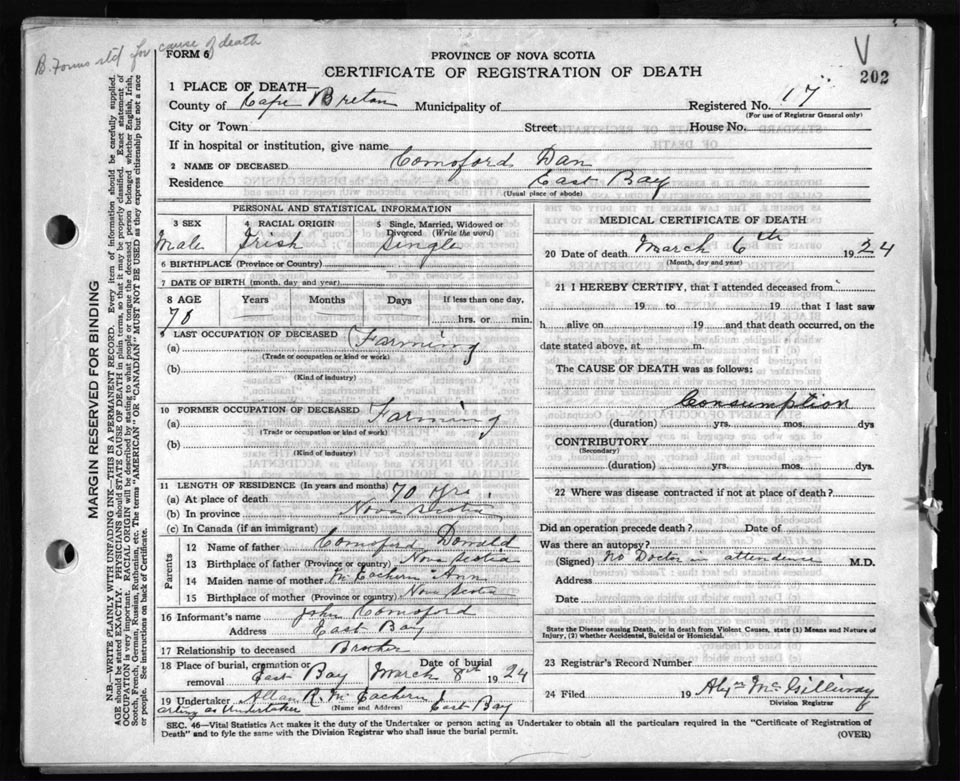 B. Forms std for cause of death
FORM 6
PROVINCE OF NOVA SCOTIA
V
CERTIFICATE OF REGISTRATION OF DEATH
202
1 PLACE OF DEATH—
County of Cape Breton Municipality of Registered No. 17
(For use of Registrar General only)
City or Town Street House No.
If in hospital or institution, give name
2 NAME OF DECEASED Comoford Dan
Residence East Bay
(Usual place of abode)
PERSONAL AND STATISTICAL INFORMATION
3 SEX 4 RACIAL ORIGIN 5 Single, Married, Widowed or Divorced (Write the word)
Male Irish Single
6 BIRTHPLACE (Province or Country)
7 DATE OF BIRTH (month, day, and year)
8 AGE Years Months Days If less than one day,
70 hrs. or min.
9 LAST OCCUPATION OF DECEASED
(a) Farming
(Trade or occupation or kind or work)
(b)
(Kind of industry)
10 FORMER OCCUPATION OF DECEASED
(a) Farming
(Trade or occupation or kind of work)
(b)
(Kind of industry)
11 LENGTH OF RESIDENCE (In years and months)
(a) At place of death 70 yrs.
(b) In province Nova Scotia
(c) In Canada (if an immigrant)
Parents
12 Name of father Comoford Donald
13 Birthplace of father (Province or country) Nova Scotia
14 Maiden name of mother McEachern Ann
15 Birthplace of mother (Province or country) Nova Scotia
16 Informant's name John Comoford
Address East Bay
17 Relationship to deceased Brother
18 Place of burial, cremation or removal East Bay Date of burial March 8th 1924
19 Undertaker Allan R. McEachern East Bay
acting as Undertaker (Name and Address)
MEDICAL CERTIFICATE OF DEATH
20 Date of death March 6th 1924
(Month, day and year)
21 I HEREBY CERTIFY, that I attended deceased from
19 to 19 that I last saw
h alive on 19 and that death occurred, on the
date stated above, at m.
The CAUSE OF DEATH was as follows:
Consumption
(duration) yrs. mos. dys
CONTRIBUTORY
(Secondary)
(duration) yrs. mos. dys.
22 Where was disease contracted if not at place of death?
Did an operation precede death? Date of
Was there an autopsy?
(Signed) No Doctor in attendence M.D.
Address
Date
State the Disease causing Death, or in death from Violent Causes, state (1) Means and Nature of
Injury, (2) whether Accidental, Suicidal or Homicidal.
23 Registrar's Record Number
24 Filed 19 Alex McGillivray
Division Registrar
SEC. 46—Vital Statistics Act makes it the duty of the Undertaker or person acting as Undertaker to obtain all the particulars required in the "Certificate of Registration of
Death" and to fyle the same with the Division Registrar who shall issue the burial permit.
(OVER)
MARGIN RESERVED FOR BINDING
N.B.—WRITE PLAINLY WITH UNFADING INK—THIS IS A PERMANENT RECORD. Every item of information should be carefully supplied.
AGE should be stated EXACTLY. PHYSICIANS should STATE CAUSE OF DEATH in plain terms, so that it may be properly classified. Exact statement of
OCCUPATION is very important. RACIAL ORIGIN will be described by stating to what people or tongue the deceased person belonged whether English, Irish,
Scotch, French, German, Russian, Ruthenian, etc. The terms "AMERICAN" OR "CANADIAN" MUST NOT BE USED as they express citizenship but not a race
or people. See instructions on back of Certificate.